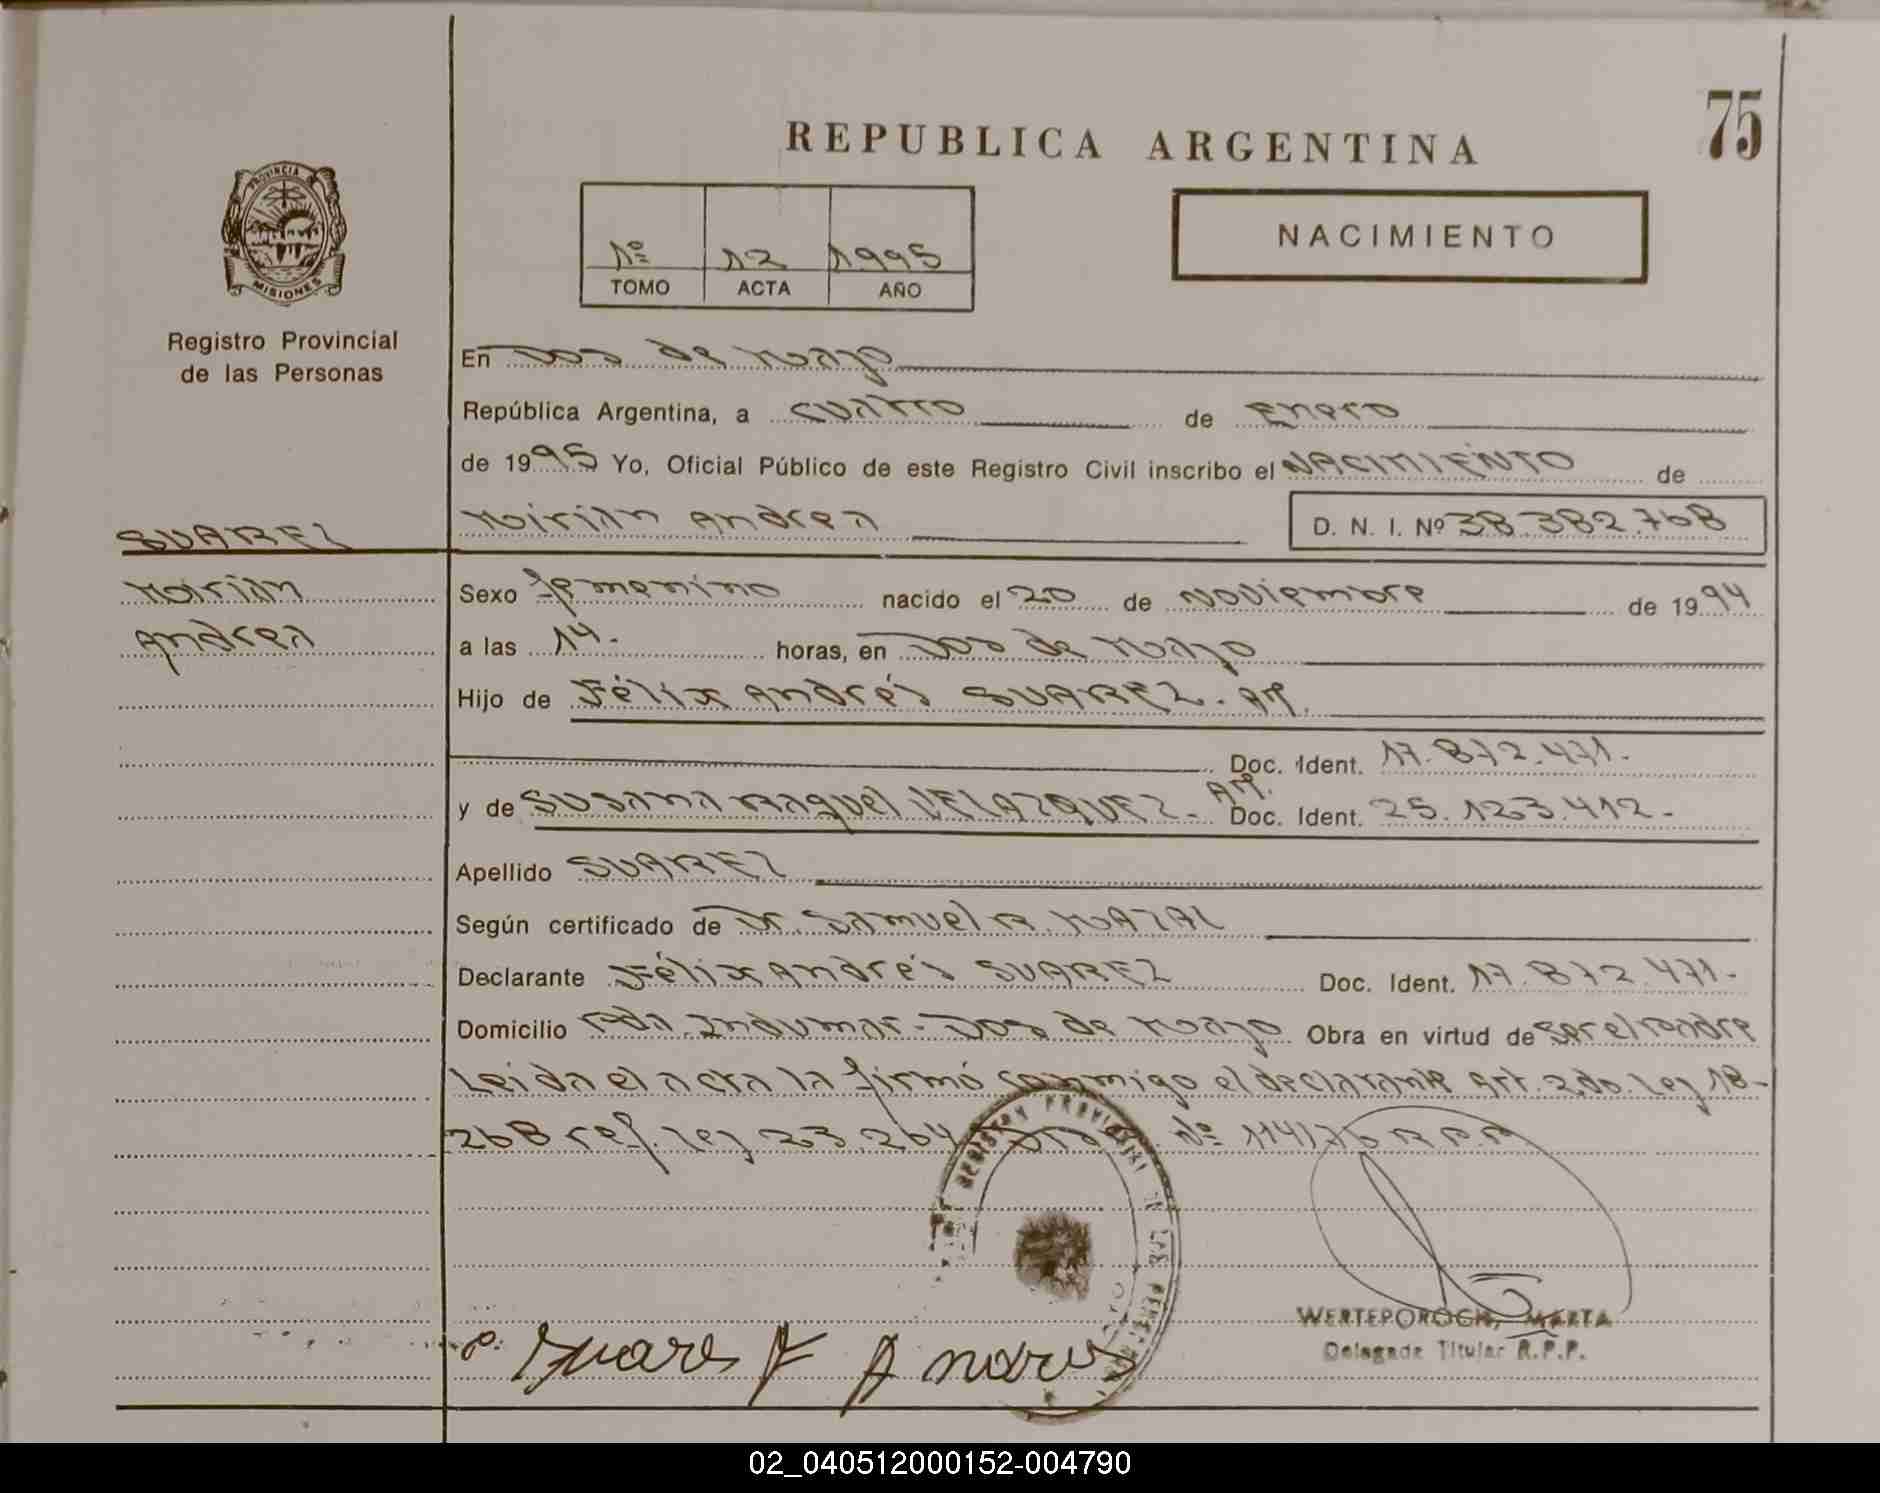 75
REPUBLICA ARGENTINA
NACIMIENTO
1º 12 1995
TOMO ACTA AÑO
PROVINCIA
MISIONES
Registro Provincial
de las Personas
En Dos de Mayo
República Argentina, a cuatro de Enero
de 1995 Yo, Oficial Público de este Registro Civil inscribo el NACIMIENTO de
SUAREZ
Mirian Andrea D. N. I. Nº 38.382.768
Mirian
Andrea
Sexo femenino nacido el 20 de Noviembre de 1994
a las 14. horas, en Dos de Mayo
Hijo de Félix Andrés SUAREZ. Ar.
Doc. Ident. 17.872.471.
y de Susana Raquel VELAZQUEZ. Ar. Doc. Ident. 25.123.412.
Apellido SUAREZ
Según certificado de Dr. Samuel R. MAZAL
Declarante Félix Andrés SUAREZ Doc. Ident. 17.872.471.
Domicilio Indumar - Dos de Mayo Obra en virtud de ser el padre
Leida el acta la firmó conmigo el declarante Art. 2do. Ley 18-
268 ref. Ley 23.264 Nº 114/76 R.P.P.
REGISTRO PROVINCIAL DE LAS PERSONAS
WERTEPOROCH, MARTA
Delegada Titular R.P.P.
p: Suares F Andres
02_040512000152-004790